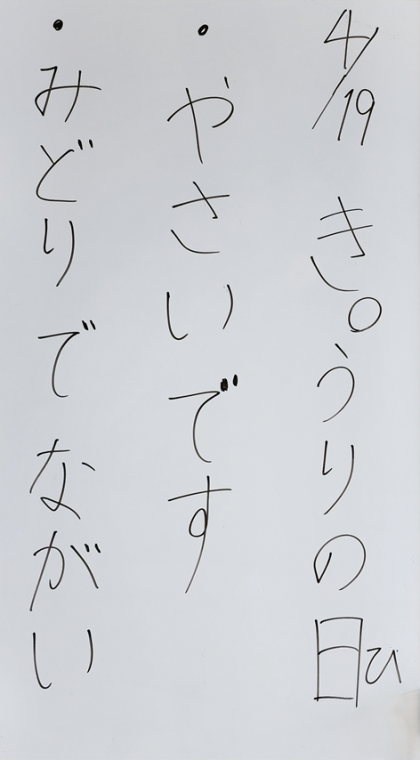 4/19 き○うりの日ひ
・やさいです
・みどりでながい